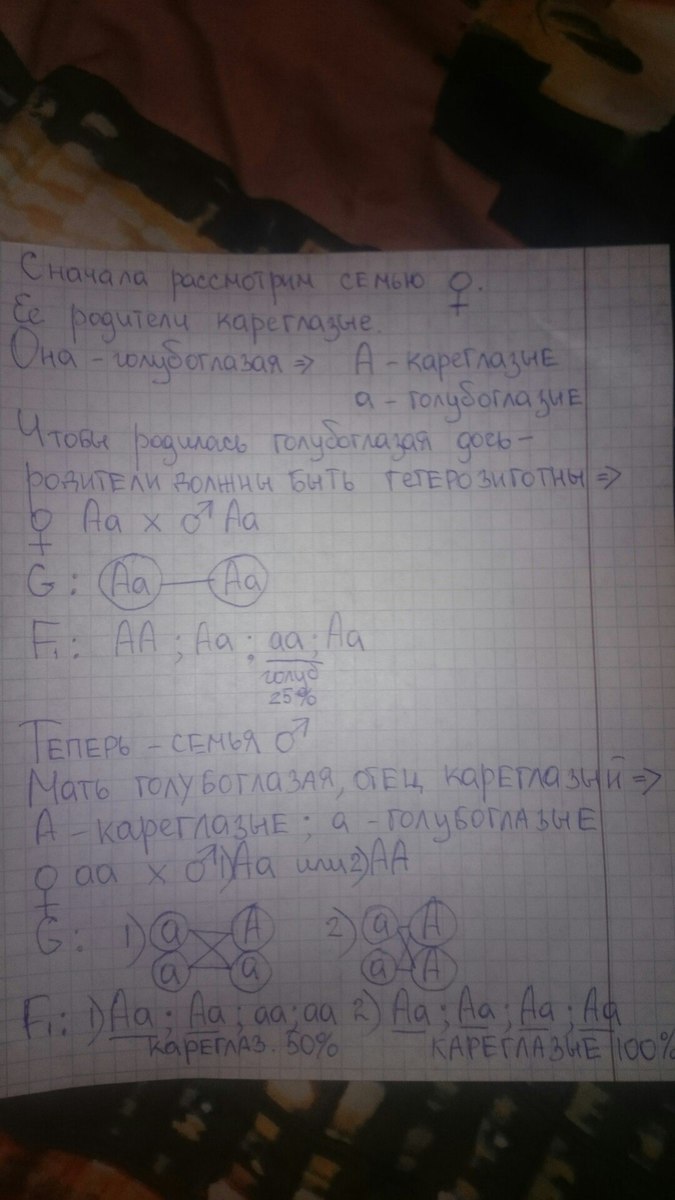 Сначала рассмотрим семью ♀.
Ее родители кареглазые.
Она - голубоглазая => А - кареглазые
а - голубоглазые
Чтобы родилась голубоглазая дочь -
родители должны быть гетерозиготны =>
♀ Аа х ♂ Аа
G: Аа Аа
F₁: АА ; Аа ; аа ; Аа
голуб
25%
Теперь - семья ♂
Мать голубоглазая, отец кареглазый =>
А - кареглазые ; а - голубоглазые
♀ аа х ♂ 1) Аа или 2) АА
G: 1) а А 2) а А
а а а А
F₁: 1) Аа ; Аа ; аа ; аа 2) Аа ; Аа ; Аа ; Аа
кареглаз. 50% кареглазые 100%